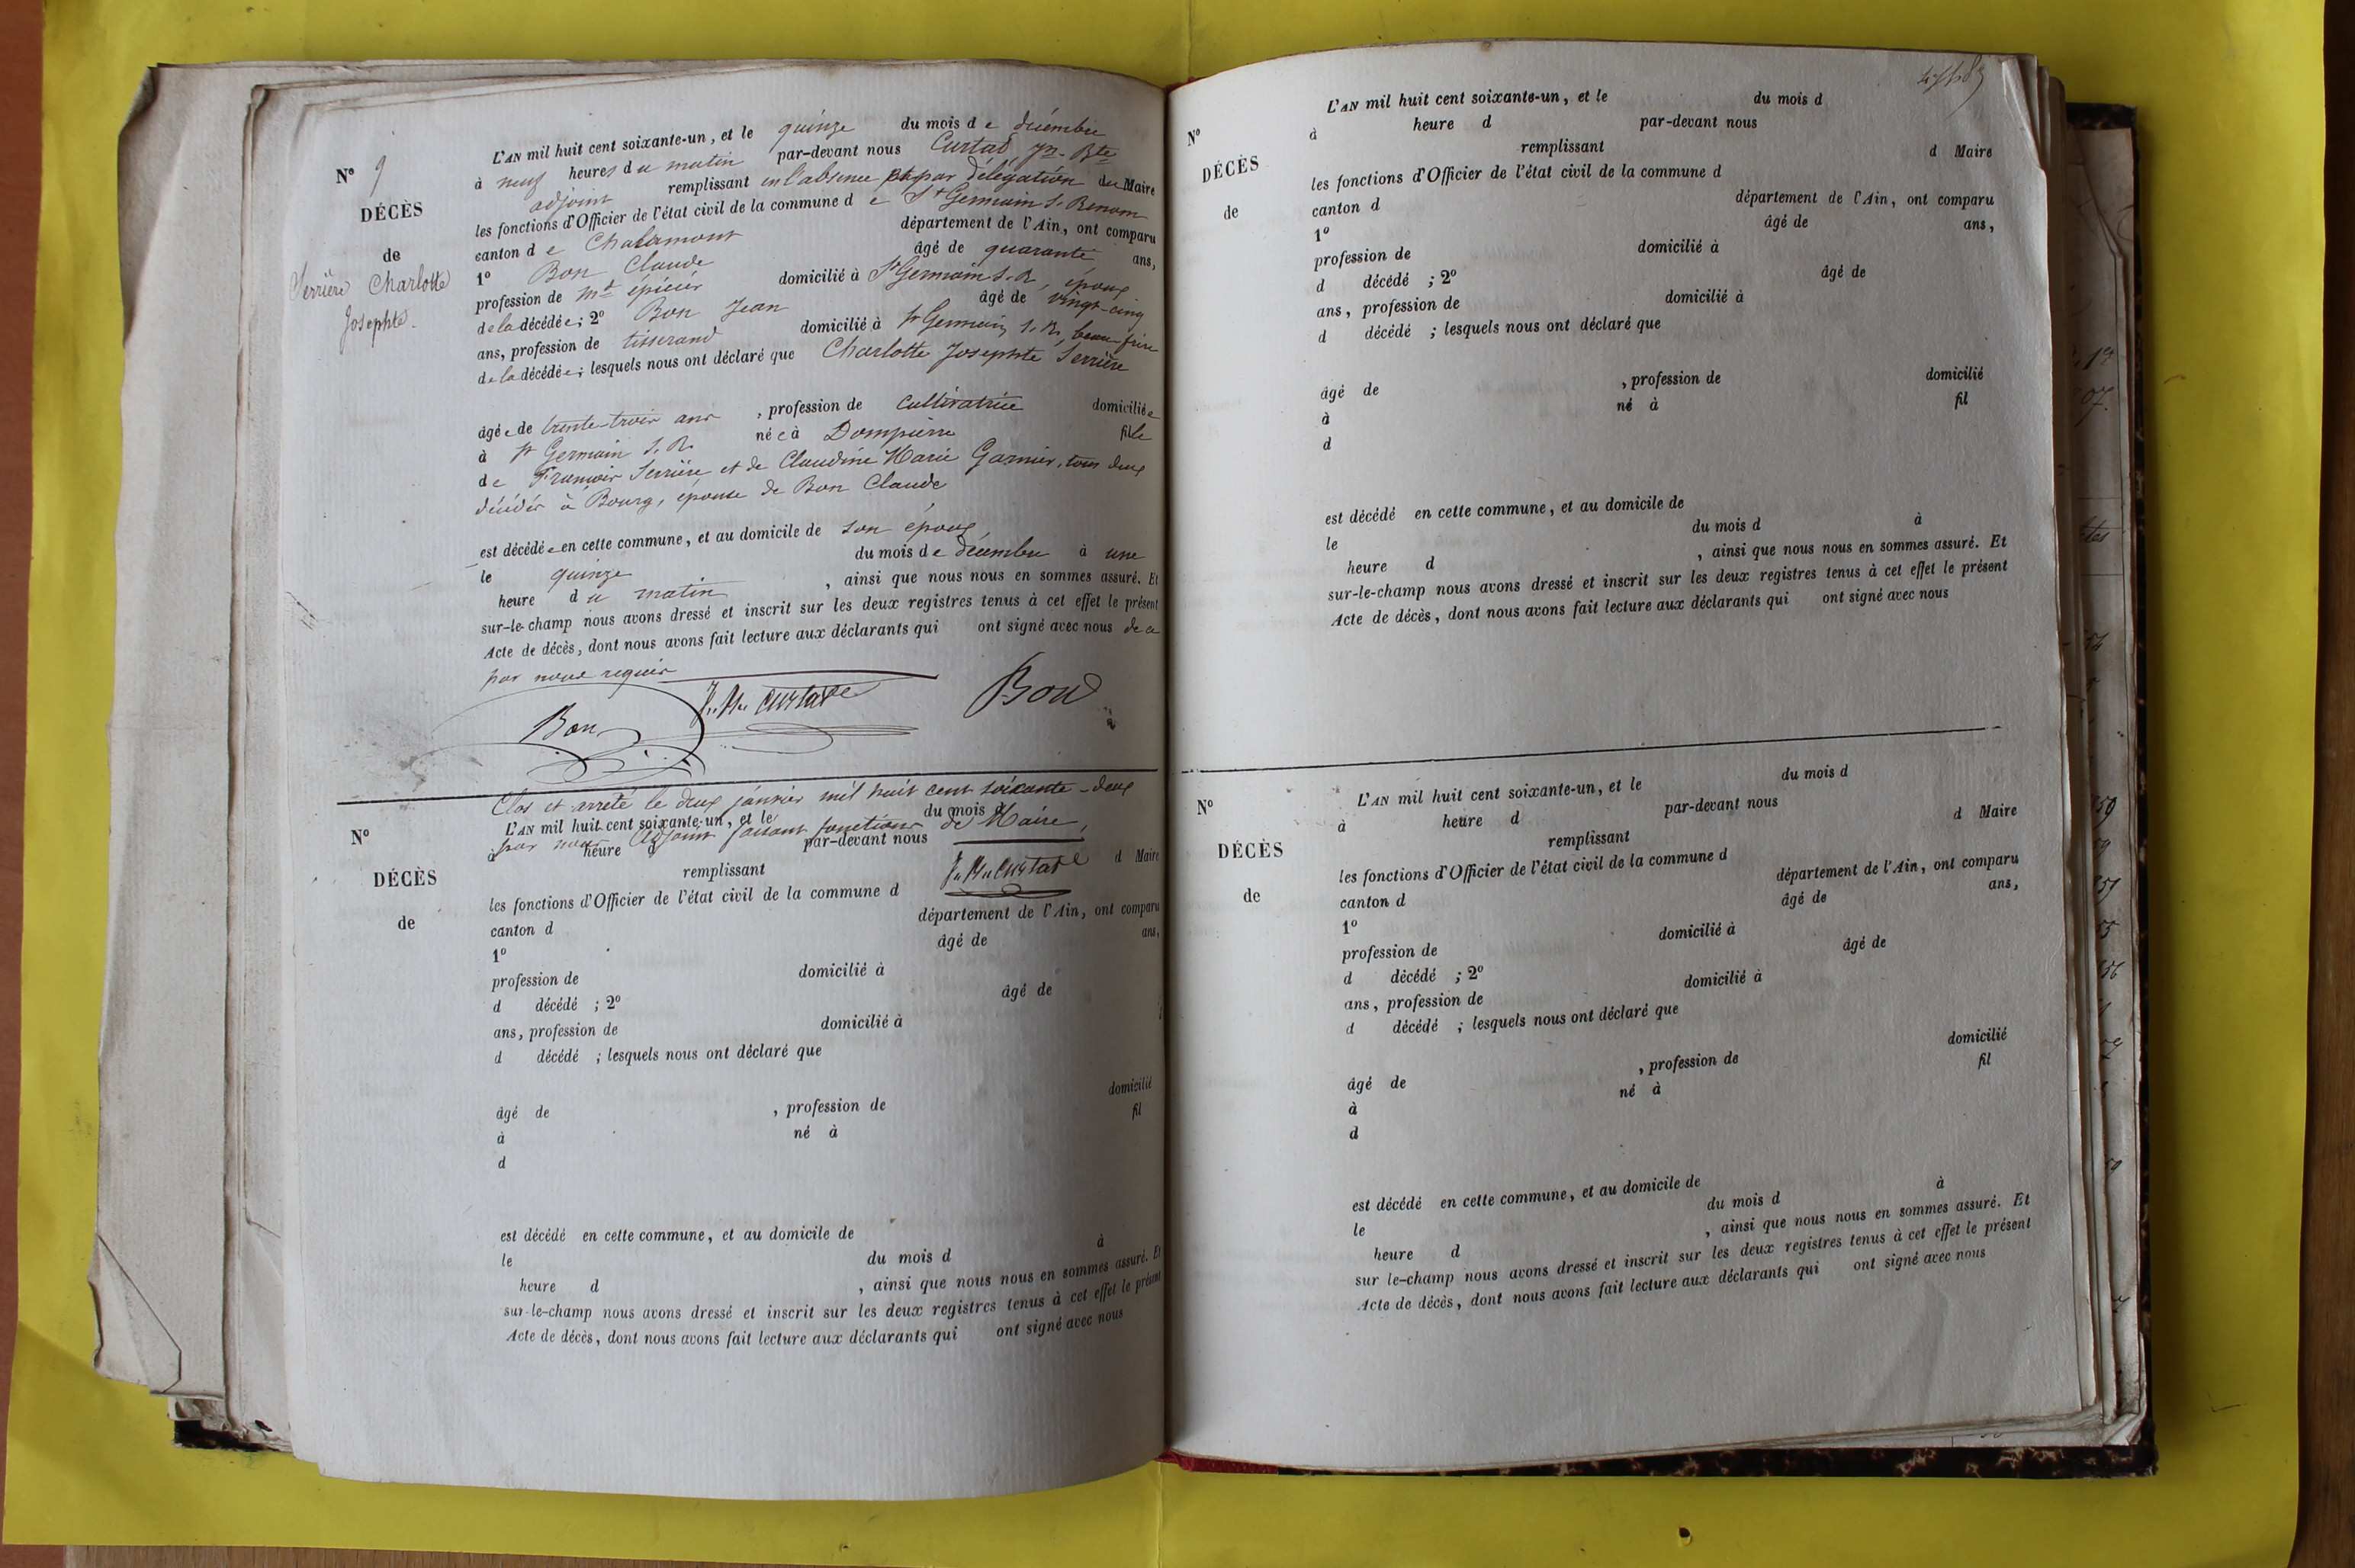 N° 9
DÉCÈS
de
Serrière Charlotte
Josephte.
L'AN mil huit cent soixante-un, et le quinze du mois de décembre
à neuf heures du matin par-devant nous Curtad, Jn-Bte
adjoint remplissant en l'absence et par délégation du Maire
les fonctions d'Officier de l'état civil de la commune de St Germain S. Renom
canton de Chalamont département de l'Ain, ont comparu
1° Bon Claude âgé de quarante ans,
profession de md épicier domicilié à St Germain S. R, époux
de la décédée; 2° Bon Jean âgé de vingt-cinq
ans, profession de tisserand domicilié à St Germain S. R, beau-frère
de la décédée; lesquels nous ont déclaré que Charlotte Josephte Serrière
âgée de trente-trois ans, profession de Cultivatrice domiciliée
à St Germain S. R. née à Dompierre fille
de François Serrière et de Claudine Marie Garnier, tous deux
décédés à Bourg, épouse de Bon Claude
est décédée en cette commune, et au domicile de son époux,
le quinze du mois de décembre à une
heure du matin, ainsi que nous nous en sommes assuré. Et
sur-le-champ nous avons dressé et inscrit sur les deux registres tenus à cet effet le présent
Acte de décès, dont nous avons fait lecture aux déclarants qui ont signé avec nous de ce
par nous requis
Bon Bon
Clos et arrêté le deux janvier mil huit cent soixante-deux
par nous adjoint faisant fonctions de Maire,
N°
DÉCÈS
de
L'AN mil huit cent soixante-un, et le du mois d
à heure d par-devant nous
remplissant d Maire
les fonctions d'Officier de l'état civil de la commune d
canton d département de l'Ain, ont comparu
1° âgé de ans,
profession de domicilié à
d décédé ; 2° âgé de
ans, profession de domicilié à
d décédé ; lesquels nous ont déclaré que
âgé de , profession de domicilié
à né à fil
d
est décédé en cette commune, et au domicile de
le du mois d à
heure d , ainsi que nous nous en sommes assuré. Et
sur-le-champ nous avons dressé et inscrit sur les deux registres tenus à cet effet le présent
Acte de décès, dont nous avons fait lecture aux déclarants qui ont signé avec nous
N°
DÉCÈS
de
L'AN mil huit cent soixante-un, et le du mois d
à heure d par-devant nous
remplissant d Maire
les fonctions d'Officier de l'état civil de la commune d
canton d département de l'Ain, ont comparu
1° âgé de ans,
profession de domicilié à
d décédé ; 2° âgé de
ans, profession de domicilié à
d décédé ; lesquels nous ont déclaré que
âgé de , profession de domicilié
à né à fil
d
est décédé en cette commune, et au domicile de
le du mois d à
heure d , ainsi que nous nous en sommes assuré. Et
sur-le-champ nous avons dressé et inscrit sur les deux registres tenus à cet effet le présent
Acte de décès, dont nous avons fait lecture aux déclarants qui ont signé avec nous
N°
DÉCÈS
de
L'AN mil huit cent soixante-un, et le du mois d
à heure d par-devant nous
remplissant d Maire
les fonctions d'Officier de l'état civil de la commune d
canton d département de l'Ain, ont comparu
1° âgé de ans,
profession de domicilié à
d décédé ; 2° âgé de
ans, profession de domicilié à
d décédé ; lesquels nous ont déclaré que
âgé de , profession de domicilié
à né à fil
d
est décédé en cette commune, et au domicile de
le du mois d à
heure d , ainsi que nous nous en sommes assuré. Et
sur le-champ nous avons dressé et inscrit sur les deux registres tenus à cet effet le présent
Acte de décès, dont nous avons fait lecture aux déclarants qui ont signé avec nous